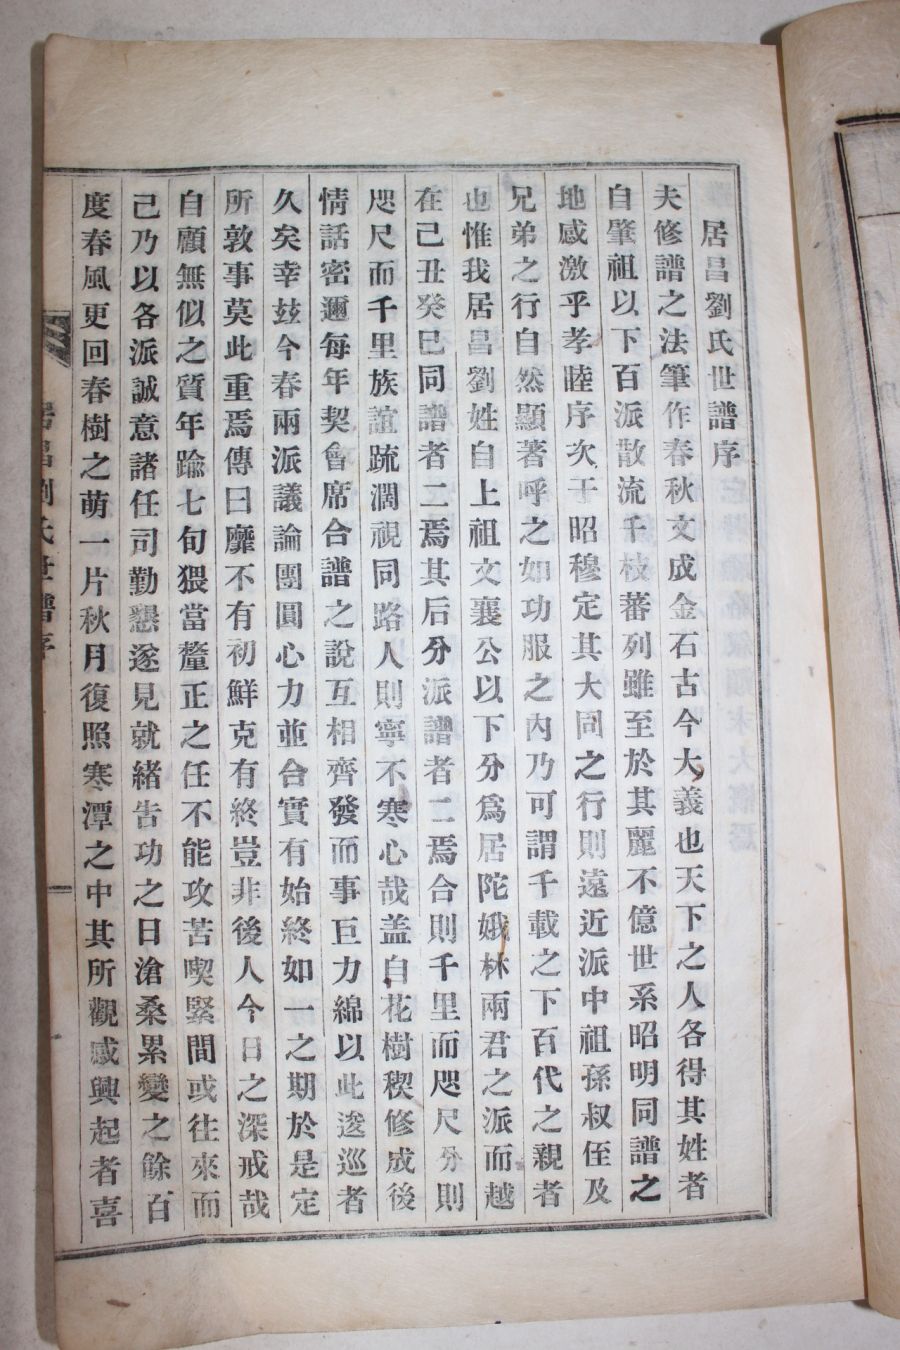 居昌劉氏世譜序
夫修譜之法筆作春秋文成金石古今大義也天下之人各得其姓者
自肇祖以下百派散流千枝蕃列雖至於其麗不億世系昭明同譜之
地感激乎孝睦序次于昭穆定其大同之行則遠近派中祖孫叔侄及
兄弟之行自然顯著呼之如功服之內乃可謂千載之下百代之親者
也惟我居昌劉姓自上祖文襄公以下分爲居陀娥林兩君之派而越
在己丑癸巳同譜者二焉其后分派譜者二焉合則千里而咫尺分則
咫尺而千里族誼疏濶視同路人則寧不寒心哉盖自花樹稧修成後
情話密邇每年契會席合譜之說互相齊發而事巨力綿以此逡巡者
久矣幸玆今春兩派議論團圓心力並合實有始終如一之期於是定
所敦事莫此重焉傳曰靡不有初鮮克有終豈非後人今日之深戒哉
自顧無似之質年踰七旬猥當釐正之任不能攻苦喫緊間或往來而
己乃以各派誠意諸任司勤懇遂見就緒告功之日滄桑累變之餘百
度春風更回春樹之萌一片秋月復照寒潭之中其所觀感興起者喜
居昌劉氏世譜序
一